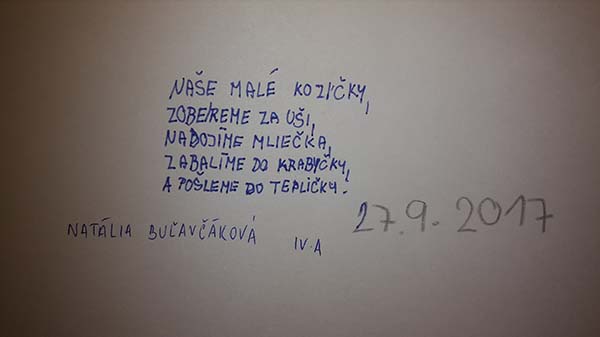 NAŠE MALÉ KOZIČKY,
ZOBEREME ZA UŠI,
NADOJÍME MLIEČKA,
ZABALÍME DO KRABYČKY,
A POŠLEME DO TEPLIČKY.
NATÁLIA BUĽAVČÁKOVÁ IV.A
27.9.2017